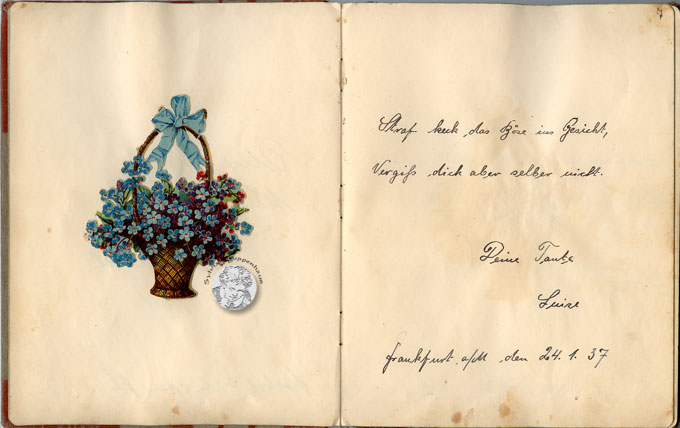 Straf keck das Böse ins Gesicht,
Vergiß dich aber selber nicht.
Deine Tante
Luise
Frankfurt a/M, den 24.1.37